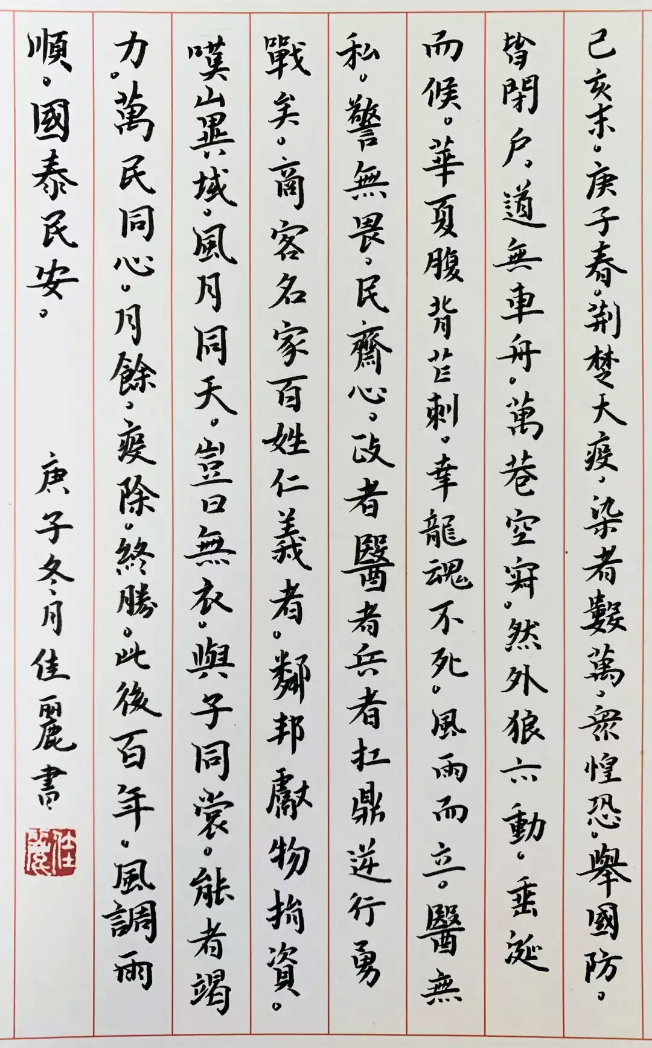 己亥末。庚子春。荆楚大疫，染者數萬，衆惶恐。舉國防。
皆閉户，道無車舟。萬巷空寂。然外狼亦動。垂涎
而候。華夏腹背芒刺。幸龍魂不死。風雨而立。醫無
私。警無畏，民齋心。政者醫者兵者扛鼎逆行勇
戰矣。商客名家百姓仁義者。鄰邦獻物捐資。
嘆山異域。風月同天。豈曰無衣。與子同裳。能者竭
力。萬民同心。月餘，疫除。終勝。此後百年。風調雨
順。國泰民安。
庚子冬月佳麗書